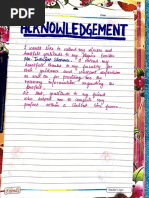 Date
ACKNOWLEDGEMENT
I would like to extend my sincere and
heartfelt gratitude to my Physics teacher
Mr. Sharma. I extend my
heartfelt thanks to my faculty for
their guidance and constant supervision
as well as for providing me the
necessary information regarding the
project.
At last gratitude to my friend
who helped me to complete my
project within a limited time frame.